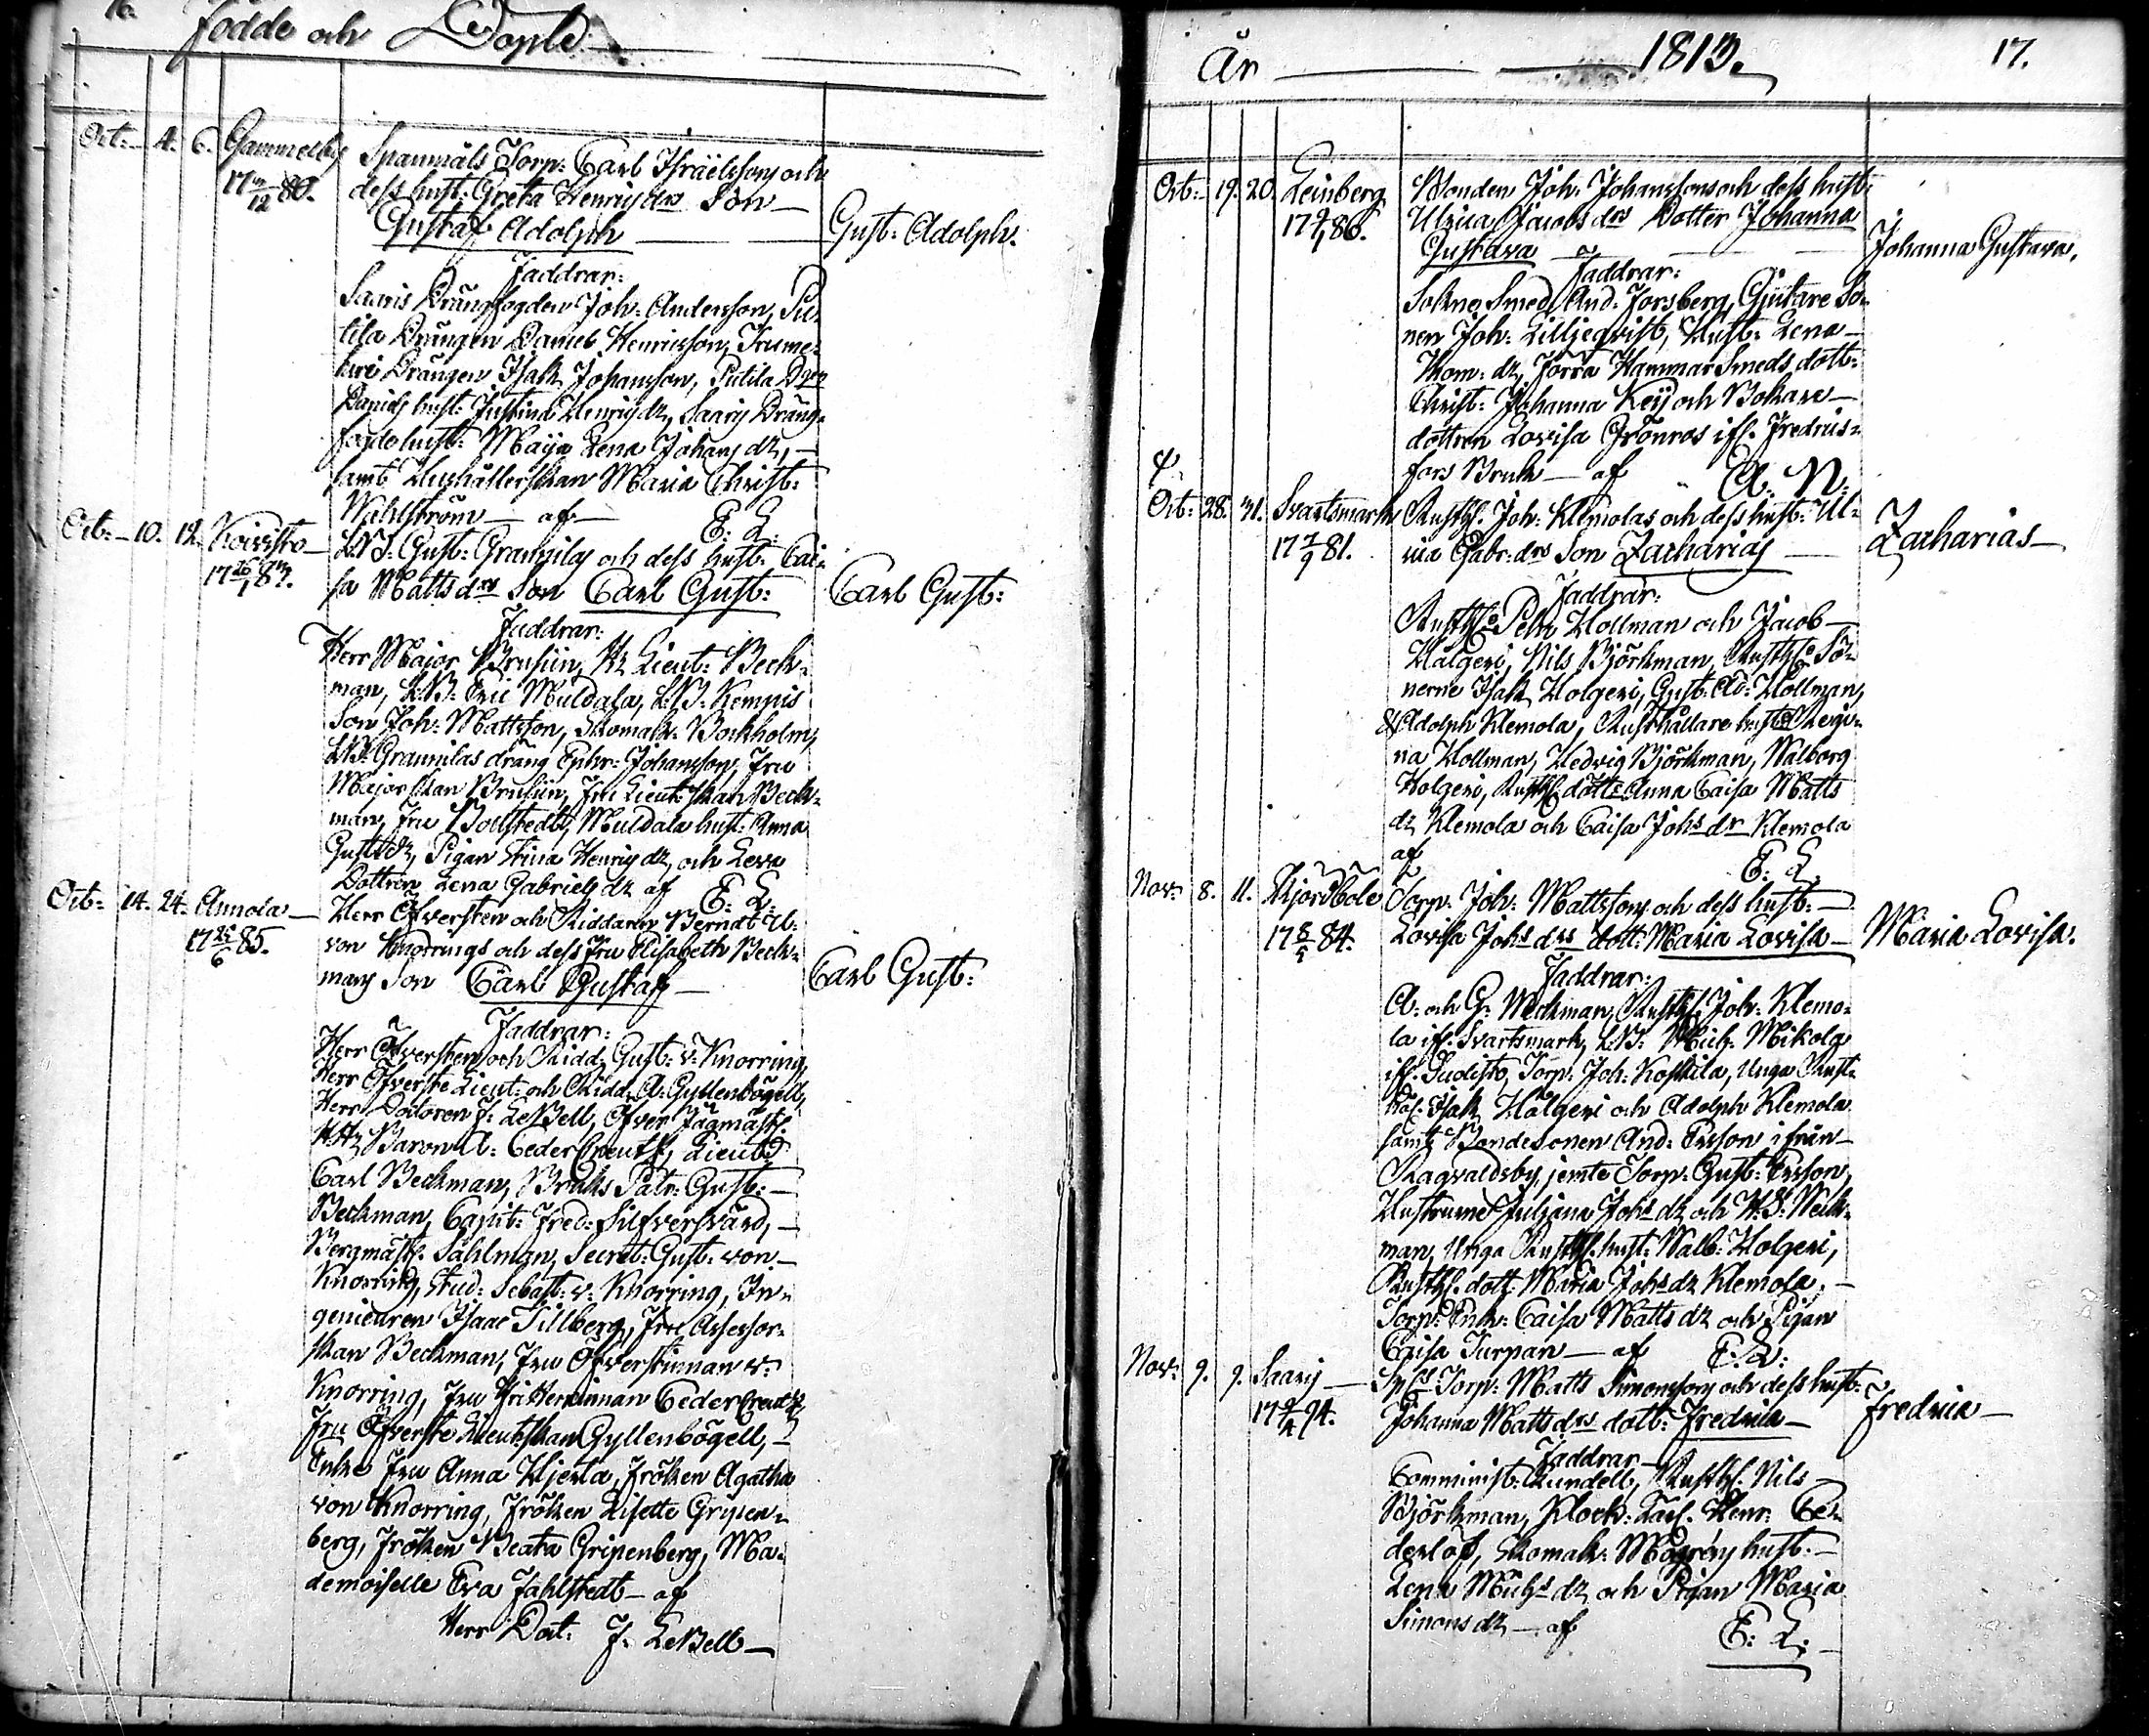 16. Födde och Döpte
Oct: 4. 6. Gammelby Spanmåls Torp: Carl Israëlssons och
17 3/12 80. dess hust: Greta Henrics drs Son
Gustaf Adolph Gust: Adolph.
Faddrar:
Saaris Drängfogden Joh: Andersson, Pu-
tila Drängen Daniel Henricsson, Krume-
luri Drängen Isak Johansson, Putila Dgen
Daniels hust: Justina Henrics dr, Saaris Dräng-
fogde hust: Maija Lena Johans dr,
samt Hushållerskan Maria Christ:
Wahlström af E: L:
Oct: 10. 12. Koivisto LB: Gust: Grannilas och dess hust: Cai-
17 26/1 87. sa Matts drs Son Carl Gust: Carl Gust:
Faddrar:
Herr Major Brusiin, Hr Lieut: Beck-
man, LB: Eric Muldala, LB: Kempis
Son Joh: Mattsson, Skomak: Bockholm,
LB: Grannilas dräng Ephr: Johansson, Fru
Majorskan Brusiin, Fru Lieut:skan Beck-
man, Fru Bollstedt, Muldala hust: Anna
Gusts dr, Pigan Stina Henrics dr, och Leva
Dottren Lena Gabriels dr af E: L:
Oct: 14. 24. Annola Herr Öfversten och Riddaren Berndt U:
17 25/6 85. von Knorrings och dess Fru Elisabeth Beck-
mans Son Carl Gustaf Carl Gust:
Faddrar:
Herr Öfversten och Ridd: Gust: v: Knorring,
Herr Öfverste Lieut: och Ridd: A: Gyllenbögell,
Herr Doctoren J: LeBell, Öfver Jägmäst:
Hr Baron A: CederCreutz, Lieutn:
Carl Beckman, Bruks Patr: Gust:
Beckman, Capit: Fred: Silfversvärd,
Bergmäst: Sahlman, Secret: Gust: von
Knorring, Stud: Sebast: v: Knorring, In-
genieuren Isaac Tillberg, Fru Assessor-
skan Beckman, Fru Öfverstinnan v:
Knorring, Fru Friherrinnan CederCreutz,
Fru Öfverste Lieutskan Gyllenbögell,
Enke Fru Anna Hjerta, Fröken Agatha
von Knorring, Fröken Lisette Gripen-
berg, Fröken Beata Gripenberg, Ma-
demoiselle Eva Fahlstedt af
Herr Doct: J: LeBell
År 1813. 17.
Oct: 19. 20. Leinberg Bonden Joh: Johanssons och dess hust:
17 86. Ulrica Jacobs drs Dotter Johanna
Gustava Johanna Gustava.
Faddrar:
Sokne Smed And: Forsberg, Gjutare So-
nen Joh: Lilljeqvist, Hust: Lena
Thom: dr, Forra Hammar Smeds dott:
Christ: Johanna Keij och Bokare
dottren Lovisa Grönros ifr. Fredrics-
fors Bruk af A: N:
Oct: 28. 31. Svartsmark Rusth. Joh: Klemolas och dess hust: Ul-
17 7/9 81. rica Gabr: drs Son Zacharias Zacharias
Faddrar:
Rusth: Petr Hollman och Jacob
Hålgeri, Nils Björkman, Rusth: Sö-
nerne Isak Holgeri, Gust: Ad: Hollman,
& Adolph Klemola, Rusthållare hustr: Regi-
na Hollman, Hedvig Björkman, Walborg
Holgeri, Rusth: dottr: Anna Caisa Matts
dr Klemola och Caisa Johs dr Klemola
af E: L:
Nov: 8. 11. Skjordbole Torp: Joh: Mattssons och dess hust:
17 8/5 84. Lovisa Johs drs dott: Maria Lovisa Maria Lovisa.
Faddrar:
A: och G: Weckman, Rusth. Joh: Klemo-
la ifr. Svartsmark, LB: Mich: Mikola
ifr. Sudisto, Torp: Joh: Koskila, Unga Rust-
hål. Isak Hålgeri och Adolph Klemola
samt Bondesonen And: Ersson ifrån
Ragvaldsby, jemte Torp: Gust: Ersson,
Hustrurne Juliana Johs dr och H: S: Weck-
man, Unga Rusth. hust: Walb: Holgeri,
Rusth. dott: Maria Johs dr Klemola,
Torp: Enk: Caisa Matts dr och Pigan
Caisa Turpan af E: L:
Nov: 9. 9. Saaris Torp: Matts Simonssons och dess hust:
17 94. Johanna Matts drs dott: Fredrica Fredrica
Faddrar
Comminist: Rundell, Rusth. Nils
Björkman, Klock: Henr: Ce-
derlöf, Skomak: Mogréns hust:
Lena Michs dr och Pigan Maria
Simons dr af E: L: